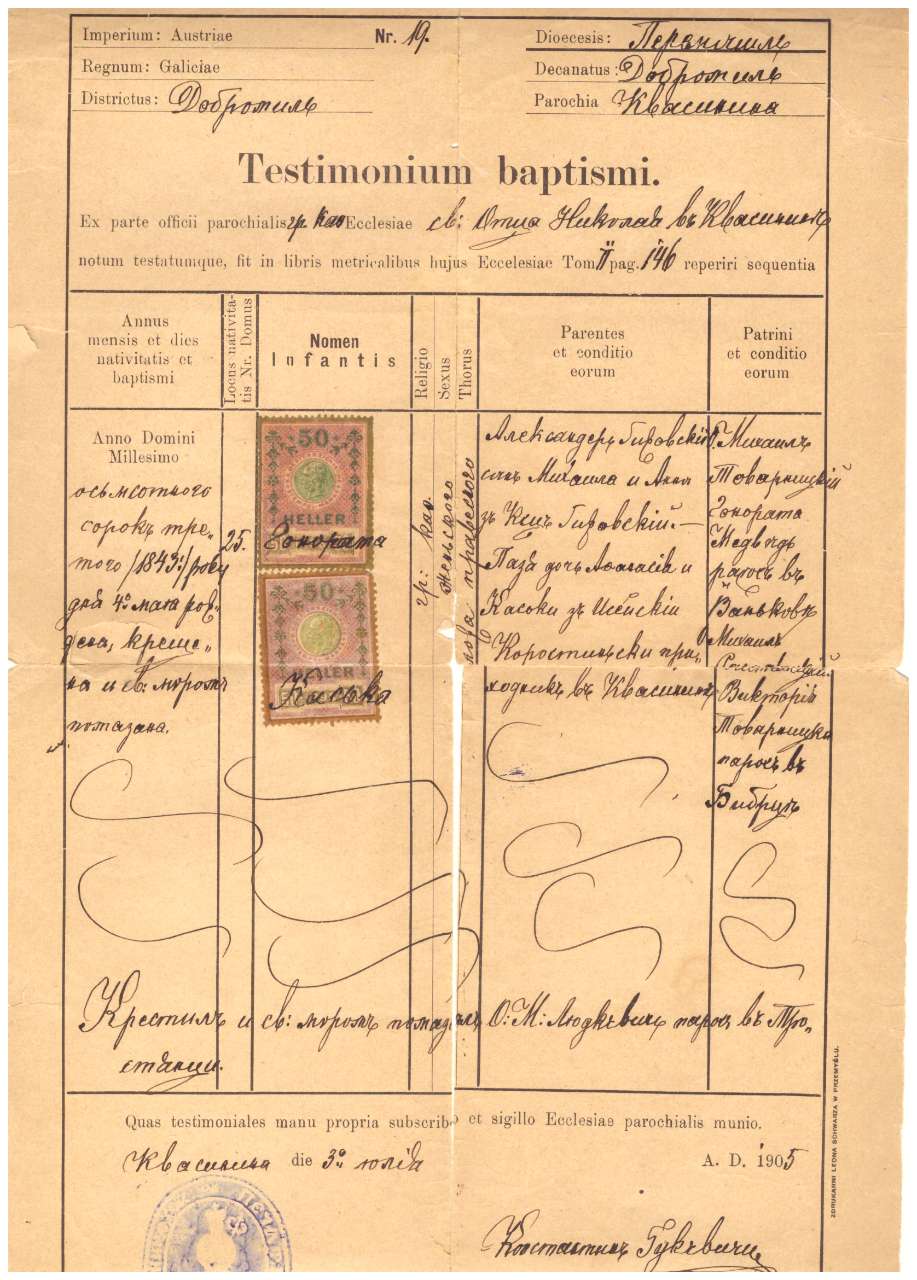 Imperium: Austriae
Nr. 19.
Dioecesis: Перемишль
Regnum: Galiciae
Decanatus: Добромиль
Districtus: Добромиль
Parochia Квасинина
Testimonium baptismi.
Ex parte officii parochialis гр. кат Ecclesiae св: Отца Николая въ Квасининѣ
notum testatumque, fit in libris metricalibus hujus Eccelesiae Tom II pag. 146 reperiri sequentia
Annus
mensis et dies
nativitatis et
baptismi
Locus nativita-
tis Nr. Domus
Nomen
Infantis
Religio
Sexus
Thorus
Parentes
et conditio
eorum
Patrini
et conditio
eorum
Anno Domini
Millesimo
осьмсотного
сорокъ тре-
того /1843:/ року
дня 4º мая ро
дена, креще-
на и св: муромъ
помазана.
25.
50
HELLER
Гонората
50
HELLER
Каська
гр: кат.
женьского
ложа правесного
Александеръ
сынъ Михаила и Анна
зъ
дочь Афанасія и
Каськи зъ
при-
ходникъ въ Квасининѣ
Михаилъ
Товарницкій
Гонората
Медвидь
парохъ въ
Ваньковѣ
Михаилъ
Викторія
Товарницка
парохъ въ
Крестилъ и св: муромъ помазалъ О: М: Людкевичъ парохъ въ Тро-
стянци.
Quas testimoniales manu propria subscribo et sigillo Ecclesiae parochialis munio.
Квасинина die 3º юлія
A. D. 1905
Константинъ
ZDRUKARNI LEONA SCHWARZA W PRZEMYŚLU.